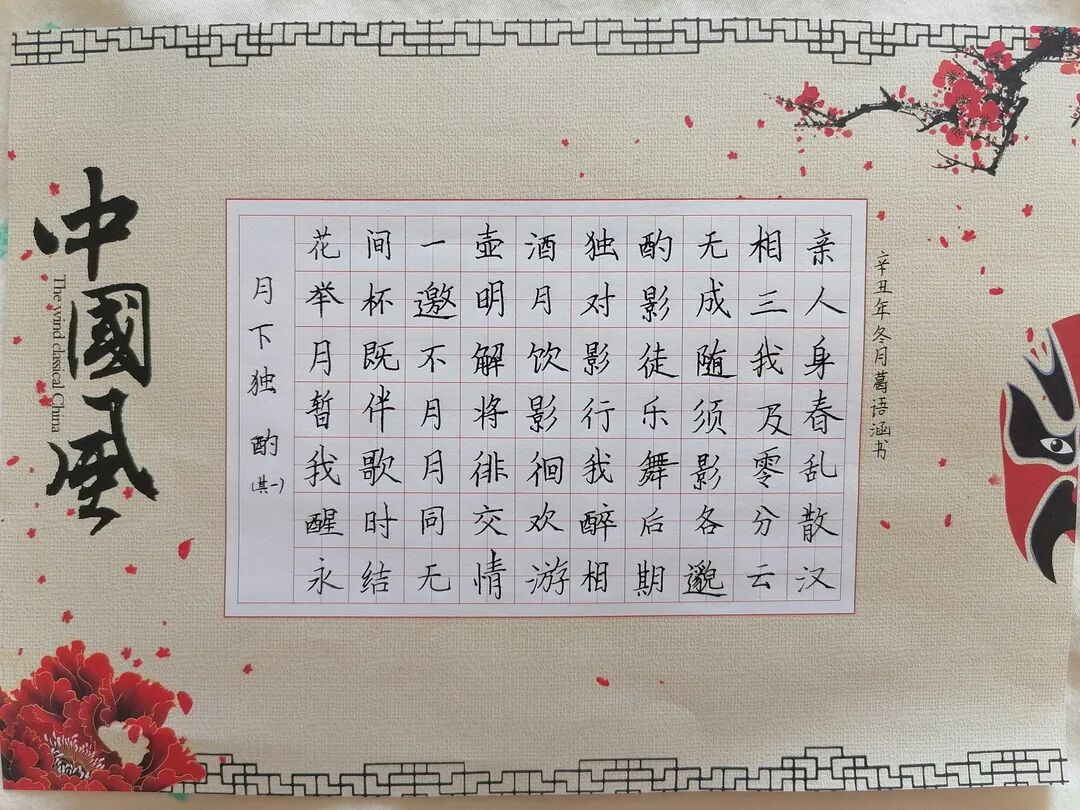 中國風
The wind classical China
月下独酌(其一)
花间一壶酒独酌无相亲
举杯邀明月对影成三人
月既不解饮影徒随我身
暂伴月将影行乐须及春
我歌月徘徊我舞影零乱
醒时同交欢醉后各分散
永结无情游相期邈云汉
辛丑年冬月葛语涵书